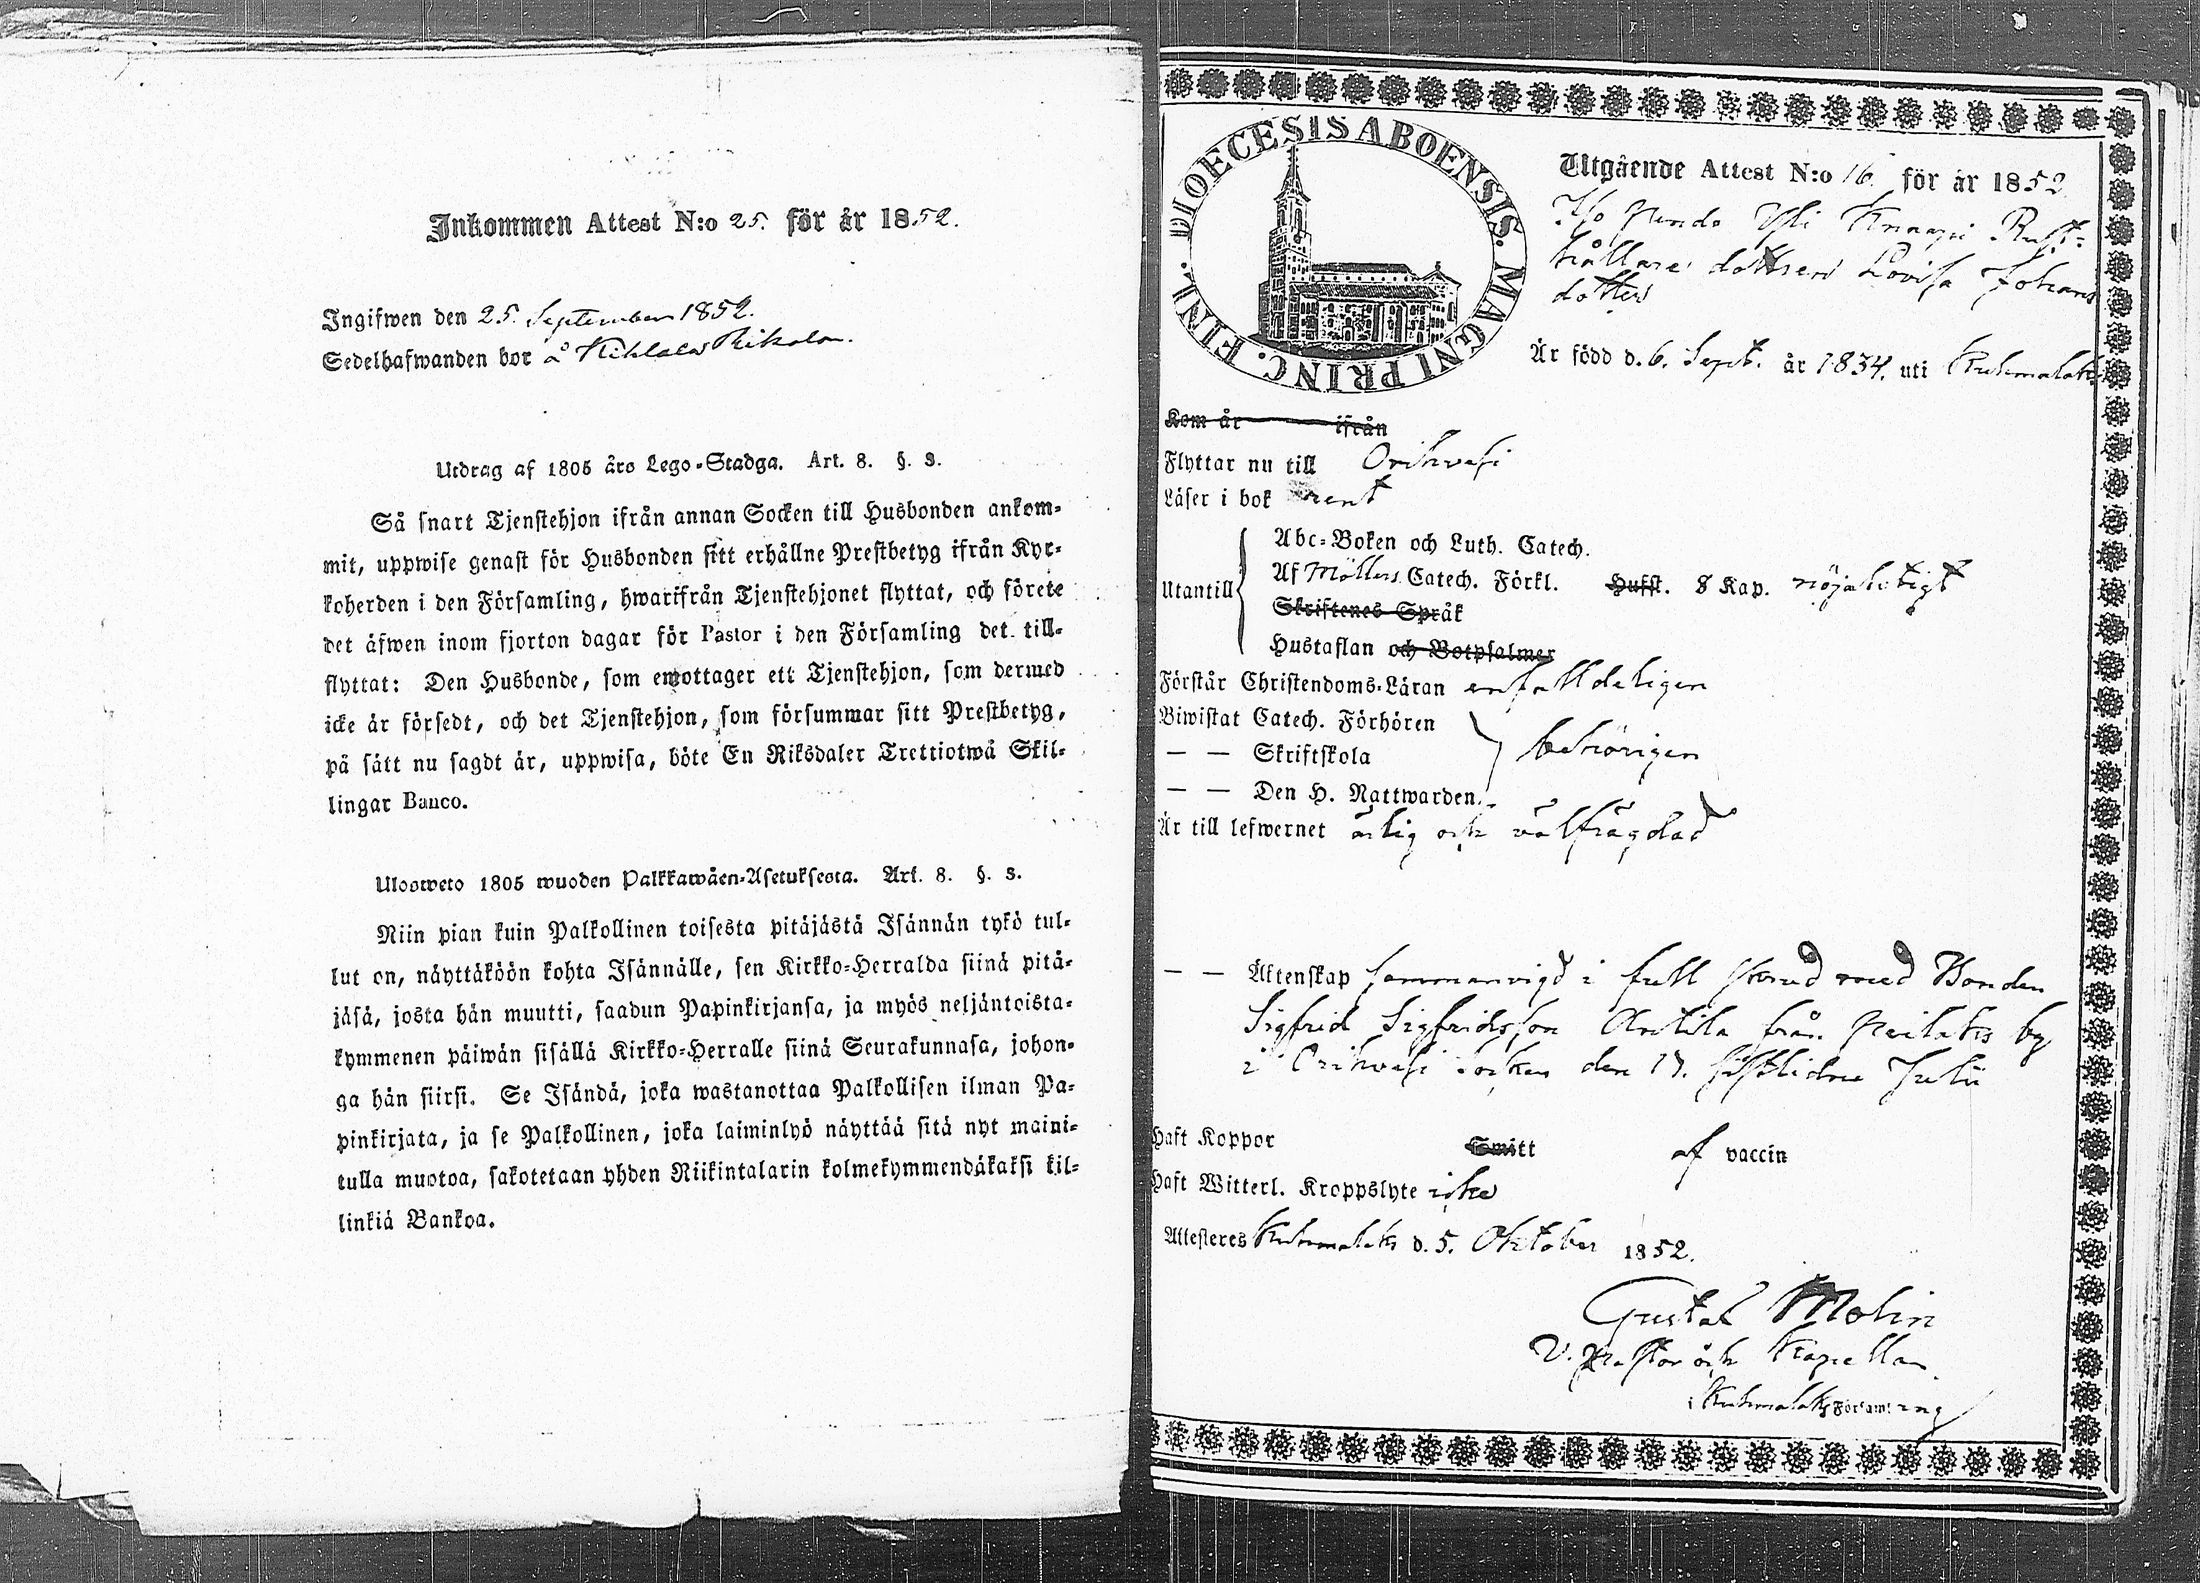 Inkommen Attest N:o 25. för år 1852.
Ingifwen den 25. September 1852.
Sedelhafwanden bor å
Utdrag af 1805 års Lego-Stadga. Art. 8. §. 3.
Så snart Tjenstehjon ifrån annan Socken till Husbonden ankom-
mit, uppwise genast för Husbonden sitt erhållne Prestbetyg ifrån Kyr-
koherden i den Församling, hwarifrån Tjenstehjonet flyttat, och förete
det äfwen inom fjorton dagar för Pastor i den Församling det till-
flyttat: Den Husbonde, som emottager ett Tjenstehjon, som dermed
icke är försedt, och det Tjenstehjon, som försummar sitt Prestbetyg,
på sätt nu sagdt är, uppwisa, böte En Riksdaler Trettiotwå Skil-
lingar Banco.
Ulosweto 1805 wuoden Palkkawäen-Asetuksesta. Art. 8. §. 3.
Niin pian kuin Palkollinen toisesta pitäjästä Isännän tykö tul-
lut on, näyttäköön kohta Isännälle, sen Kirkko-Herralda siinä pitä-
jäsä, josta hän muutti, saadun Papinkirjansa, ja myös neljäntoista-
kymmenen päiwän sisällä Kirkko-Herralle siinä Seurakunnasa, johon-
ga hän siirsi. Se Isändä, joka wastanottaa Palkollisen ilman Pa-
pinkirjata, ja se Palkollinen, joka laiminlyö näyttää sitä nyt maini-
tulla muotoa, sakotetaan yhden Riikintalarin kolmekymmendäkaksi kil-
linkiä Bankoa.
DIOECESIS ABOENSIS. MAGNI PRINC. FINL.
Utgående Attest N:o 16. för år 1852.
Yli Knaapi Rust-
hållare dottren Lovisa Johans
dotter
Är född d. 6. Sept. år 1834. uti Kuhmalaks
Kom år ifrån
Flyttar nu till Orihvesi
Läser i bok rent
Utantill
Abc-Boken och Luth. Catech.
Af Möllers Catech. Förkl. Husst. 8 Kap. nöjaktigt
Skriftenes Språk
Hustaflan och Botpsalmer
Förstår Christendoms-Läran enfalldeligen
Biwistat Catech. Förhören
— — Skriftskola behörigen
— — Den H. Nattwarden
Är till lefwernet ärlig och välfrägdad
— — Äktenskap sammanvigd i full stånd med Bonden
Sigfrid Sigfridsson Antila från by
i Orihvesi socken den 17. sistlidne Julii
Haft Koppor Smitt af vaccin
Haft Witterl. Kroppslyte icke
Attesteres Kuhmalaks d. 5. Oktober 1852.
Gustaf Molin
V. Pastor och Kapellan
i Kuhmalaks Församling